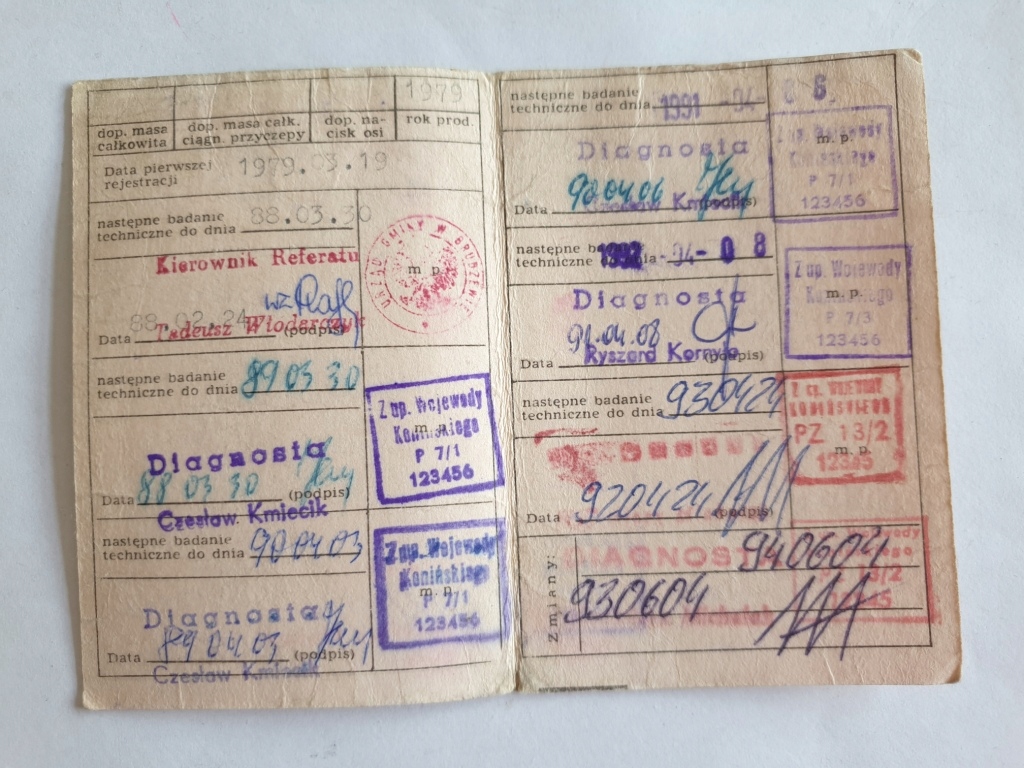 1979
dop. masa całkowita
dop. masa całk. ciągn. przyczepy
dop. nacisk osi
rok prod.
Data pierwszej
rejestracji 1979.03.19
następne badanie
techniczne do dnia 88.03.30
Kierownik Referatu
m. p.
URZĄD GMINY W
88.02.24
Tadeusz
Data (podpis)
następne badanie
techniczne do dnia 89 03 30
Z up. Wojewody
Konińskiego
m. p.
P 7/1
123456
Diagnosta
Data 88 03 30 (podpis)
Czesław Kmiecik
następne badanie
techniczne do dnia 90 04 03
Z up. Wojewody
Konińskiego
m. p.
P 7/1
123456
Diagnosta
Data 89 04 03 (podpis)
Czesław Kmiecik
następne badanie
techniczne do dnia 1991 -04- 06
Z up. Wojewody
m. p.
Konińskiego
P 7/1
123456
Diagnosta
Data 90 04 06 (podpis)
Czesław Kmiecik
następne badanie
techniczne do dnia 1992 -04- 08
Z up. Wojewody
m. p.
Konińskiego
P 7/3
123456
Diagnosta
91.04.08
Data (podpis)
Ryszard
następne badanie
techniczne do dnia 930424
PZ 13/2
m. p.
12345
Data 920424 (podpis)
Zmiany:
DIAGNOSTA
940604
930604